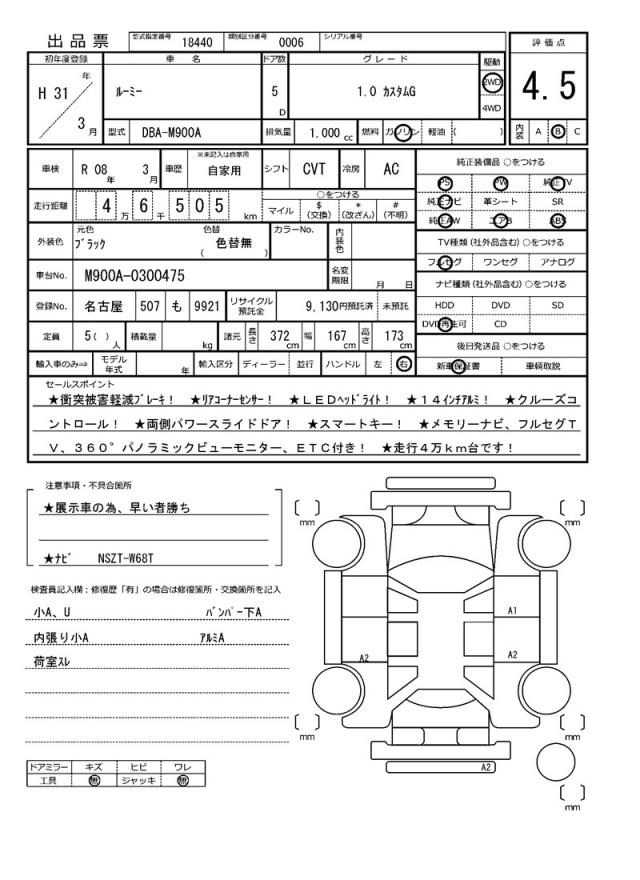 出品票 型式指定番号 18440 類別区分番号 0006 シリアル番号
初年度登録 車 名 ドア数 グレード 駆動 評価点
H 31 年 3 月 ルーミー 5 D 1.0 カスタムG 2WD 4WD 4.5
型式 DBA-M900A 排気量 1.000 cc 燃料 ガソリン 軽油 ( ) 内装 A B C
車検 R 08 年 3 月 車歴 ※未記入は自家用 自家用 シフト CVT 冷房 AC
純正装備品 ○をつける
PS PW 純正TV
純正ナビ 革シート SR
純正AW エアB ABS
走行距離 4 万 6 千 5 0 5 km ○をつける マイル $ (交換) * (改ざん) # (不明)
外装色 元色 ブラック 色替 色替無 ( ) カラーNo. 内装色
TV種類 (社外品含む) ○をつける
フルセグ ワンセグ アナログ
車台No. M900A-0300475 名変期限 月 日
ナビ種類 (社外品含む) ○をつける
HDD DVD SD
DVD再生可 CD
登録No. 名古屋 507 も 9921 リサイクル預託金 9,130円預託済 未預託
定員 5( ) 人 積載量 kg 諸元 長さ 372 cm 幅 167 cm 高さ 173 cm
後日発送品 ○をつける
新車保証書 車輌取説
輸入車のみ⇒ モデル年式 年 輸入区分 ディーラー 並行 ハンドル 左 右
セールスポイント
★衝突被害軽減ブレーキ! ★リアコーナーセンサー! ★LEDヘッドライト! ★14インチアルミ! ★クルーズコ
ントロール! ★両側パワースライドドア! ★スマートキー! ★メモリーナビ、フルセグT
V、360°パノラミックビューモニター、ETC付き! ★走行4万km台です!
注意事項・不具合箇所
★展示車の為、早い者勝ち
★ナビ NSZT-W68T
検査員記入欄:修復歴「有」の場合は修復箇所・交換箇所を記入
小A、U バンパー下A
内張り小A アルミA
荷室スレ
ドアミラー キズ ヒビ ワレ
工具 無 ジャッキ 無
mm mm
A1
A2 A2
mm mm
A2
mm